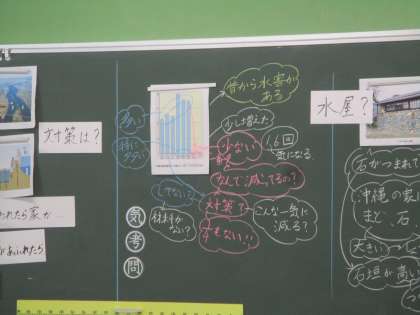 対策は?
昔から水害が
ある
多い
少し増えた
少ない
1,6回
気になる
なんで減ってるの?
してない?
対策?
こんな一気に
減る?
材料が
ない?
気
考
問
水屋?
石がつまれて
沖縄の家に
まど、石、
大きい
石垣が高い
われたら家が…
があふれたら